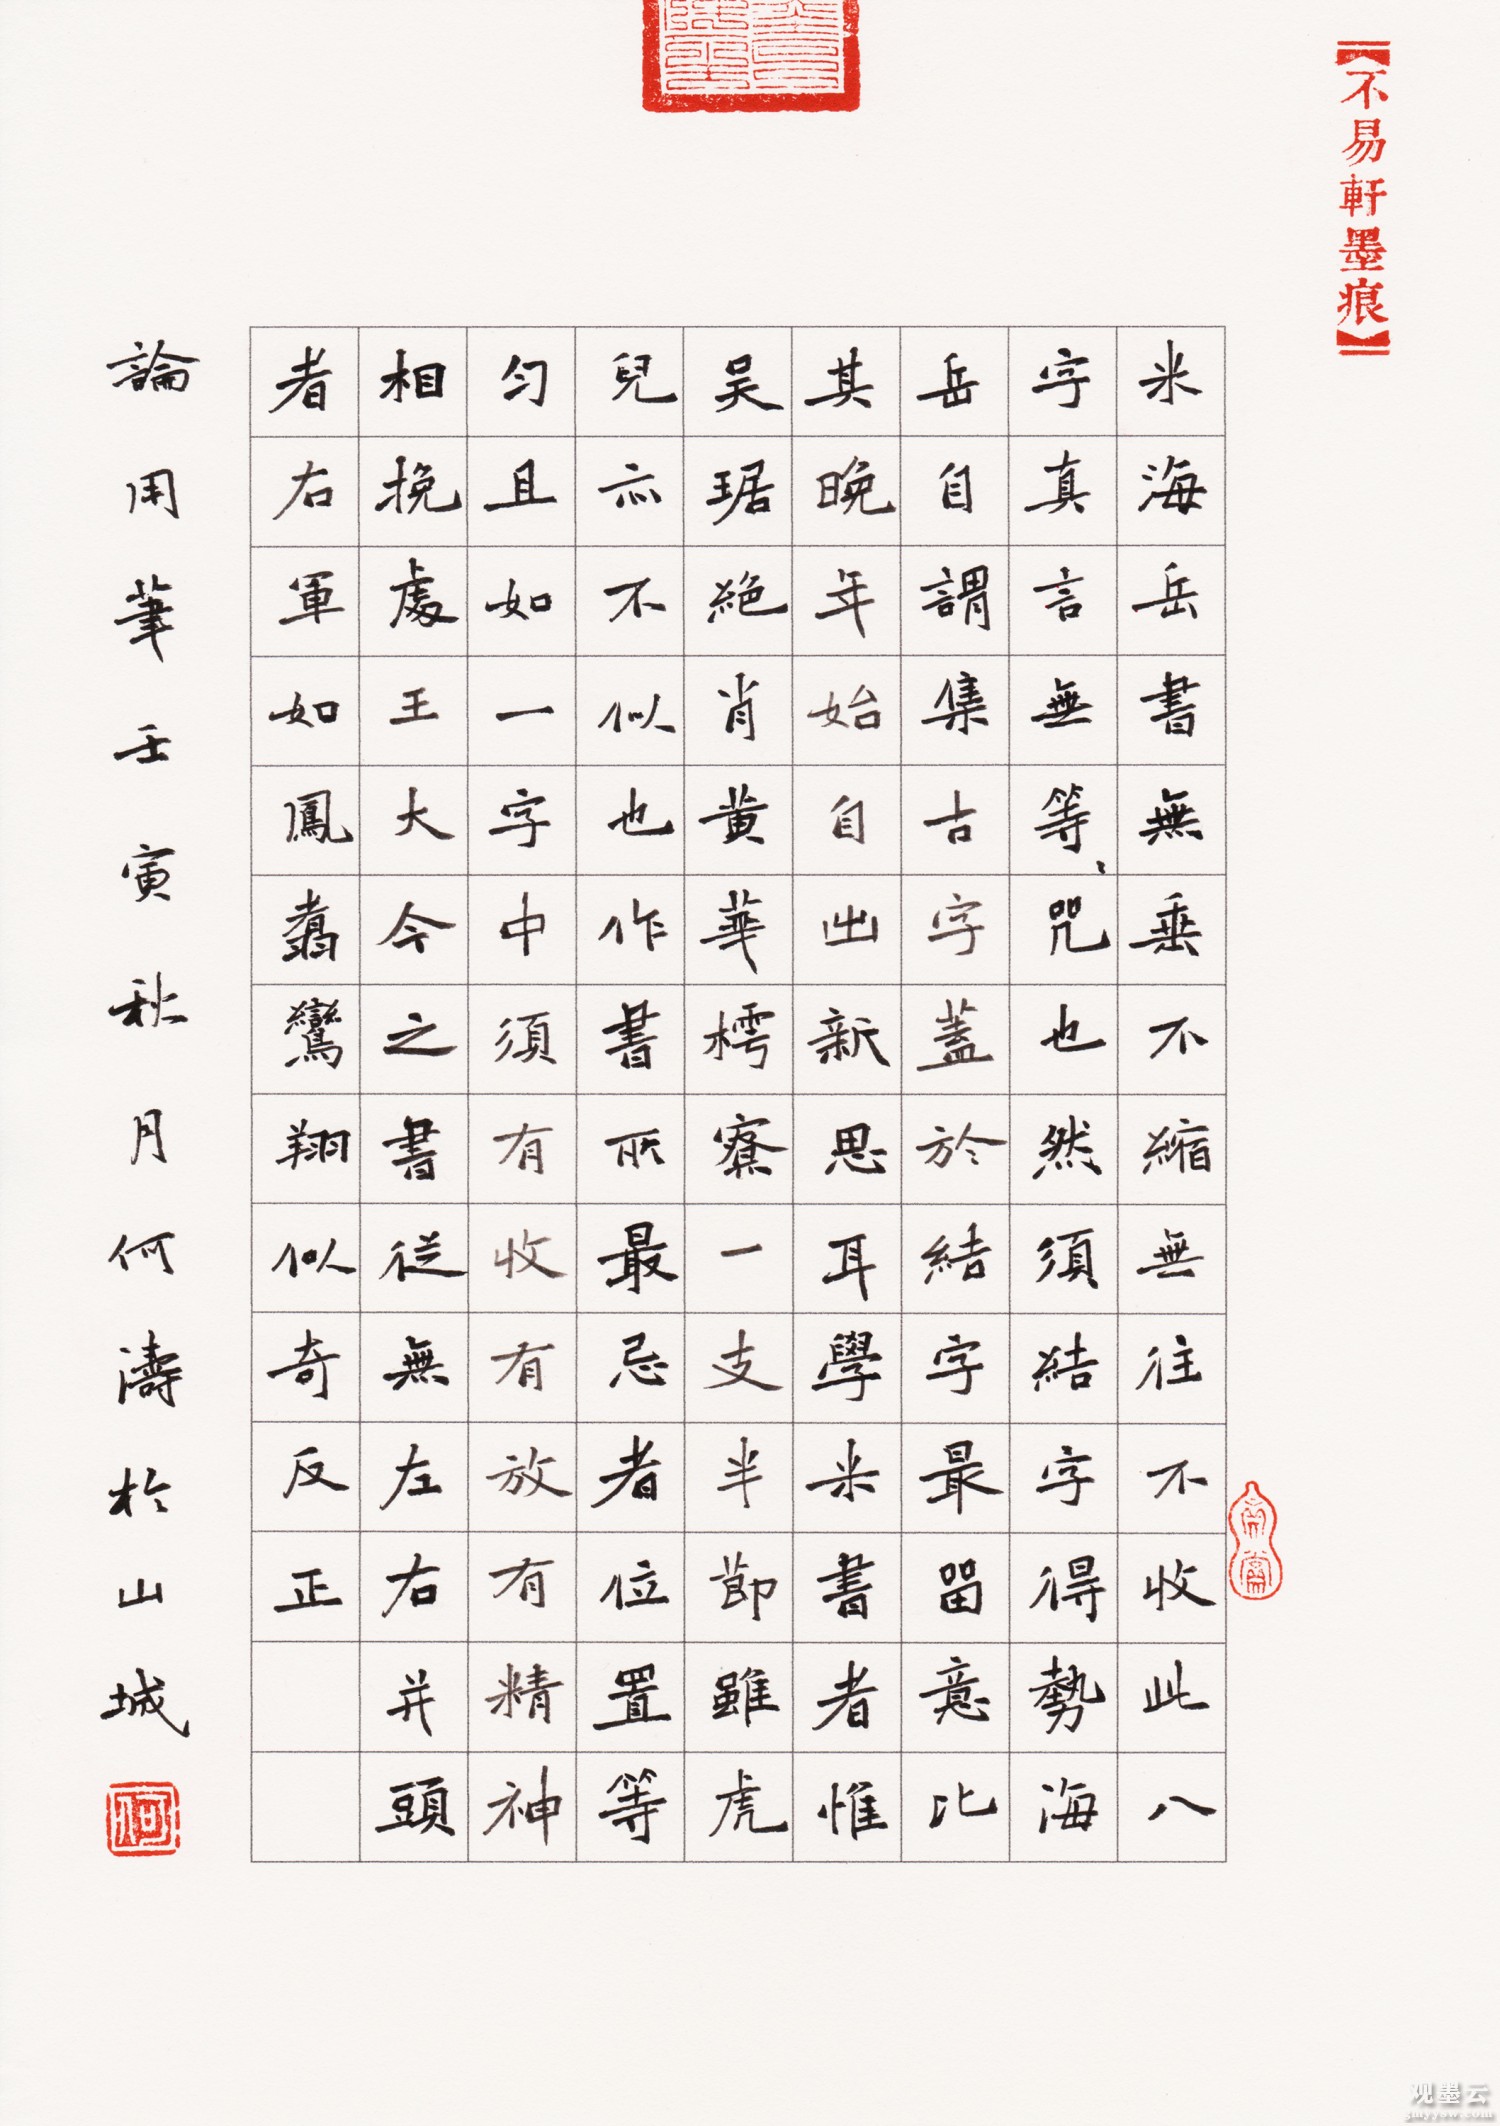 【不易軒墨痕】
米海岳書無垂不縮無往不收此八
字真言無等〻咒也然須結字得勢海
岳自謂集古字蓋於結字最留意比
其晚年始自出新思耳學米書者惟
吴琚絕肖黃華樗寮一支半節雖虎
兒亦不似也作書所最忌者位置等
勻且如一字中須有收有放有精神
相挽處王大今之書從無左右并頭
者右軍如鳳翥鸞翔似奇反正
論用筆壬寅秋月何濤於山城
何
观墨云